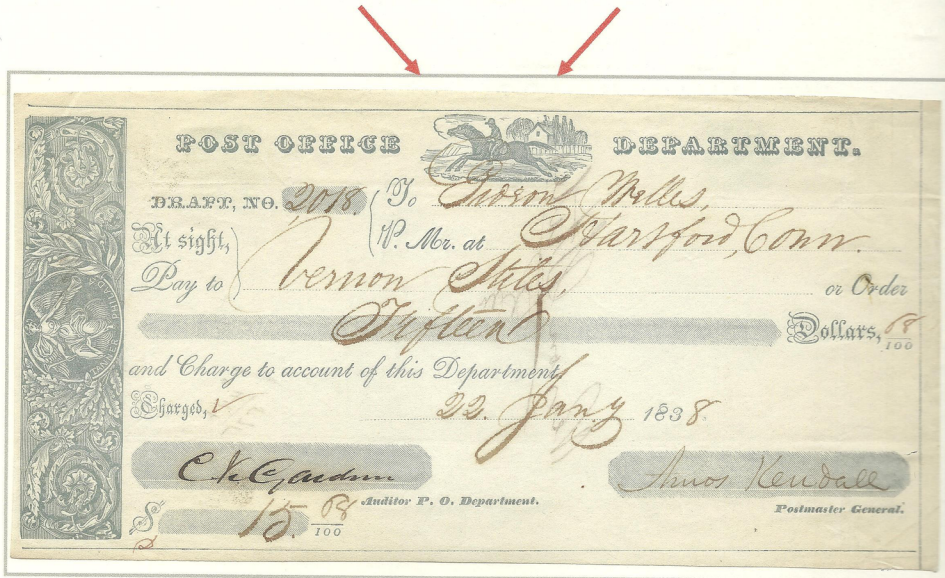 POST OFFICE DEPARTMENT.
DRAFT, NO. 2018. To Gideon Welles,
P. Mr. at Hartford, Conn.
At sight,
Pay to Vernon Stiles, or Order
Fifteen Dollars, 68/100
and Charge to account of this Department
Charged, 22. Jany 1838.
C. K. Gardner Amos Kendall
Auditor P. O. Department. Postmaster General.
$ 15. 68/100